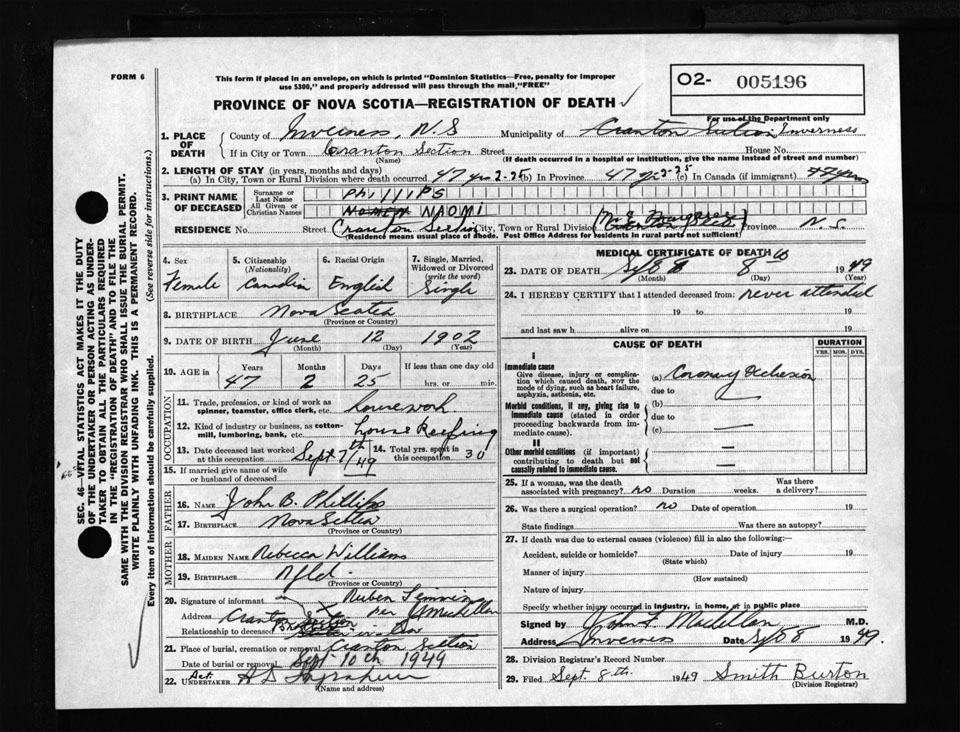 FORM 6
This form if placed in an envelope, on which is printed "Dominion Statistics—Free, penalty for improper
use $300," and properly addressed will pass through the mail "FREE"
O2- 005196
For use of the Department only
PROVINCE OF NOVA SCOTIA—REGISTRATION OF DEATH
1. PLACE OF DEATH
County of Inverness, N.S Municipality of Cranton Section Inverness
If in City or Town Cranton Section Street House No.
(Name) (If death occurred in a hospital or institution, give the name instead of street and number)
2. LENGTH OF STAY (in years, months and days)
(a) In City, Town or Rural Division where death occurred 47 yrs 2-25 (b) In Province 47 yrs 2-25 (c) In Canada (if immigrant) 47 yrs
3. PRINT NAME OF DECEASED
Surname or Last Name Phillips
All Given or Christian Names NAOMI
RESIDENCE No. Street Cranton Section City, Town or Rural Division Province N.S.
(Residence means usual place of abode. Post Office Address for residents in rural parts not sufficient)
4. Sex Female
5. Citizenship (Nationality) Canadian
6. Racial Origin English
7. Single, Married, Widowed or Divorced (write the word) Single
8. BIRTHPLACE Nova Scotia
(Province or Country)
9. DATE OF BIRTH June 12 1902
(Month) (Day) (Year)
10. AGE in Years Months Days If less than one day
47 2 25 hrs. or min.
OCCUPATION
11. Trade, profession, or kind of work as
spinner, teamster, office clerk, etc. housework
12. Kind of industry or business, as cotton-
mill, lumbering, bank, etc. House Keeping
13. Date deceased last worked at this occupation Sept 7th/49
14. Total yrs. spent in this occupation 30
15. If married give name of wife
or husband of deceased
FATHER
16. Name John B. Phillips
17. Birthplace Nova Scotia
(Province or Country)
MOTHER
18. MAIDEN NAME Rebecca Williams
19. BIRTHPLACE Nfld.
(Province or Country)
20. Signature of informant Reuben
per
Address Cranton Section
Relationship to deceased
21. Place of burial, cremation or removal Cranton Section
Date of burial or removal Sept 10th 1949
22. Act. UNDERTAKER
(Name and address)
MEDICAL CERTIFICATE OF DEATH
23. DATE OF DEATH Sept 8 1949
(Month) (Day) (Year)
24. I HEREBY CERTIFY that I attended deceased from: never attended
19 to 19
and last saw h alive on 19
CAUSE OF DEATH
DURATION
YRS. MOS. DYS.
I
Immediate cause
Give disease, injury or complica-
tion which caused death, NOT the
mode of dying, such as heart failure,
asphyxia, asthenia, etc.
(a) Coronary Occlusion
due to
Morbid conditions, if any, giving rise to
immediate cause (stated in order
proceeding backwards from im-
mediate cause).
(b)
due to
(c)
II
Other morbid conditions (if important)
contributing to death but not
causally related to immediate cause.
25. If a woman, was the death
associated with pregnancy? no Duration weeks. Was there a delivery?
26. Was there a surgical operation? no Date of operation 19
State findings Was there an autopsy?
27. If death was due to external causes (violence) fill in also the following:—
Accident, suicide or homicide? Date of injury 19
(State which)
Manner of injury
(How sustained)
Nature of injury
Specify whether injury occurred in industry, in home, or in public place
Signed by John F. Maclellan M.D.
Address Inverness Date Sept 8 1949.
28. Division Registrar's Record Number
29. Filed Sept. 8th. 1949 Smith Burton
(Division Registrar)
SEC. 46—VITAL STATISTICS ACT MAKES IT THE DUTY
OF THE UNDERTAKER OR PERSON ACTING AS UNDER-
TAKER TO OBTAIN ALL THE PARTICULARS REQUIRED
IN THE "REGISTRATION OF DEATH" AND TO FILE THE
SAME WITH THE DIVISION REGISTRAR WHO SHALL ISSUE THE BURIAL PERMIT.
WRITE PLAINLY WITH UNFADING INK. THIS IS A PERMANENT RECORD.
Every item of information should be carefully supplied. (See reverse side for instructions.)